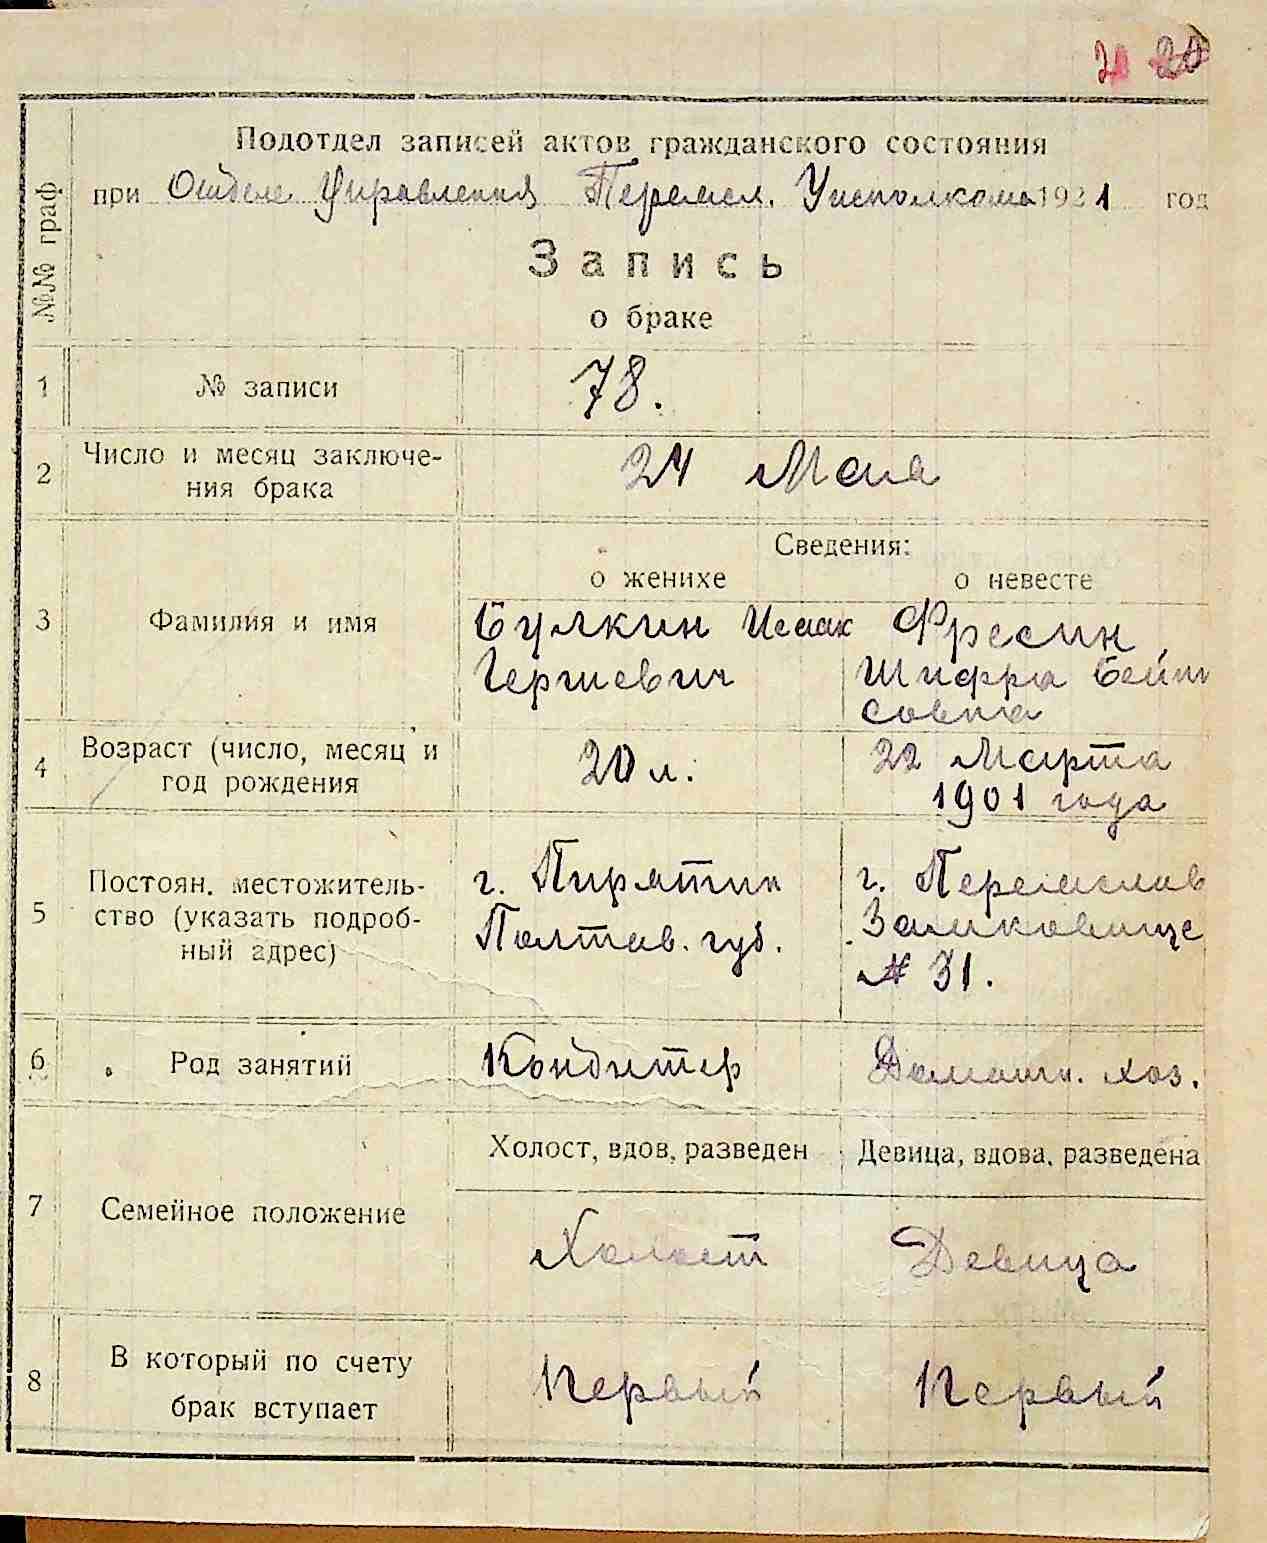 20
Подотдел записей актов гражданского состояния
при Отделе Управления Переясл. Уисполкома 1921 год
№№ граф
Запись
о браке
1 № записи 78.
2 Число и месяц заключе-
ния брака 24 Мая
Сведения:
о женихе о невесте
3 Фамилия и имя Булкин Исаак Фресин
Гершевич Шифра Бейни
совна
4 Возраст (число, месяц и
год рождения 20 л. 22 Марта
1901 года
5 Постоян. местожитель-
ство (указать подроб-
ный адрес) г. Пирятин г. Переяслав
Полтав. губ. Замковище
№ 31.
6 Род занятий Кондитер Домашн. хоз.
Холост, вдов, разведен Девица, вдова, разведена
7 Семейное положение Холост Девица
8 В который по счету
брак вступает Первый Первый